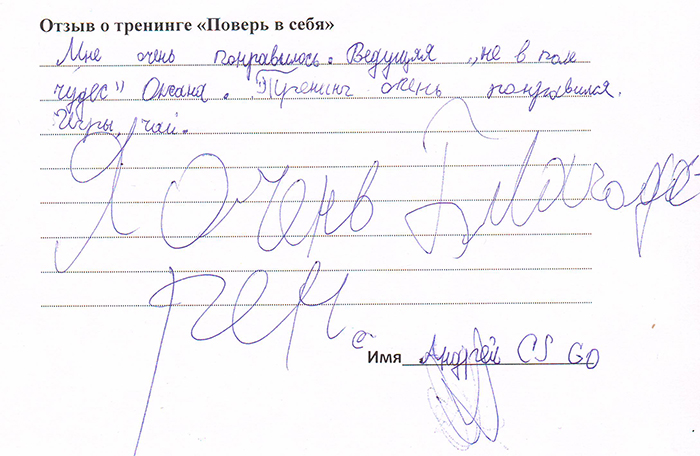 Отзыв о тренинге «Поверь в себя»
Мне очень понравилось. Ведущуя „не в поле
чудес" Оксана. Тренинг очень понравился.
Игры, чай.
Я очень благода-
рен.
Имя Андрей CS GO